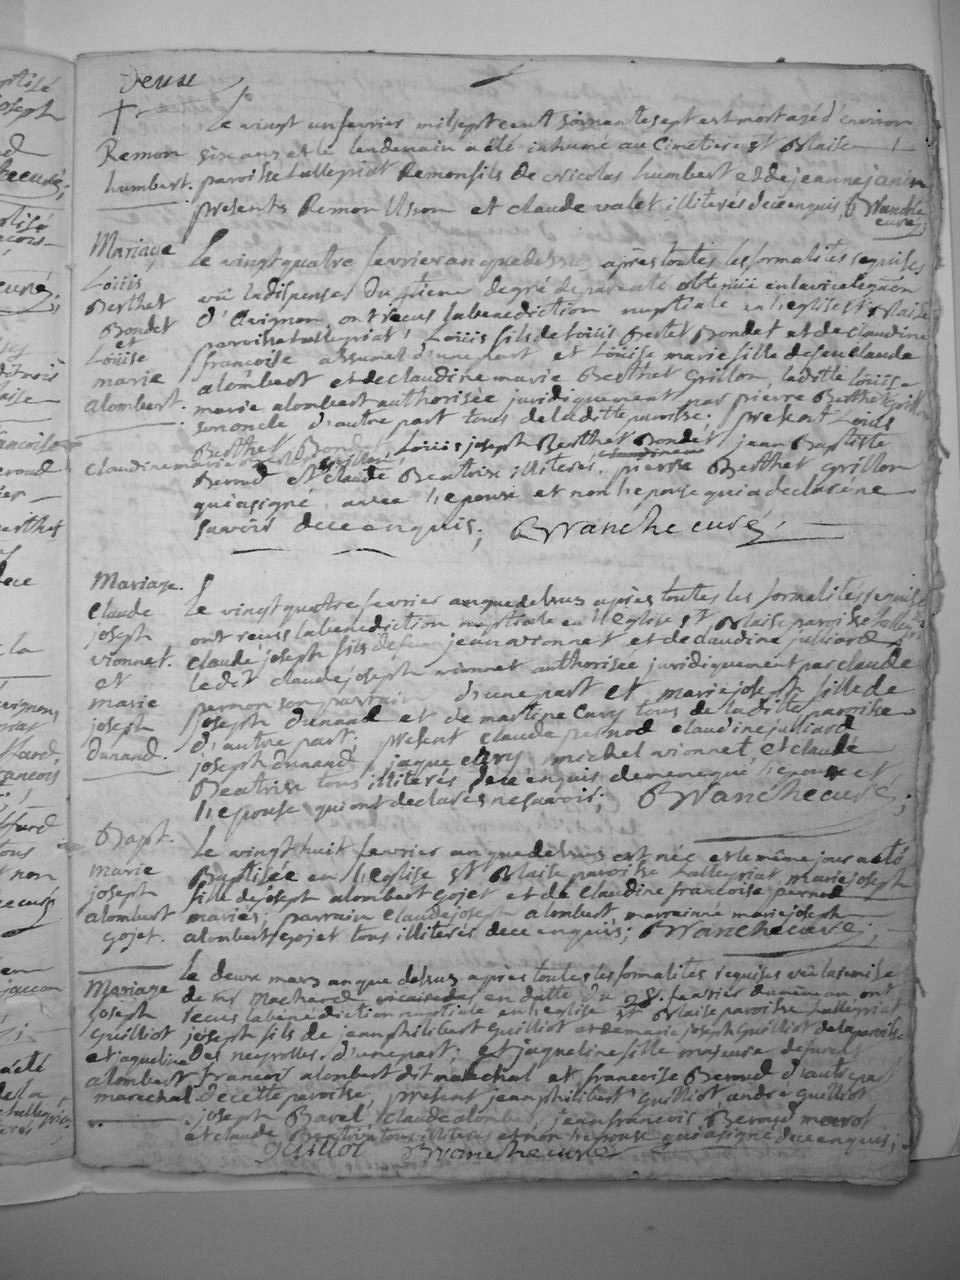 Deux
†
Le vingt un fevrier mil sept cent soixante sept est mort agé d'environ
Remon six ans et le lendemain a été inhumé au Cimetiere St Blaise
humbert. paroisse tallegriat Remon fils de Nicolas humbert et de jeanne janin
presents Remon Usson et claude valet illiterés de ce enquis, Blanche
curé
Mariage Le vingt quatre fevrier an que dessus, après toutes les formalités requises
Loüis vû la dispense du degré de parenté obtenüe en la vicelegation
Berthet d'Avignon ont reçus la benediction nuptiale en l'eglise St Blaise
Bondet paroisse tallegriat Loüis fils de Loüis Bertet Bondet et de claudine
et
Loüise françoise d'une part et Loüise marie fille de feu claude
marie alombert et de claudine marie Berthet Grillon, ladite Loüise
alombert. marie alombert authorisée juridiquement par pierre Berthet grillon
son oncle d'autre part tous de la ditte paroisse; present Louis
Berthet Bondet, Loüis joseph Berthet Bondet, jean Baptiste
claudine marie Berthet Grillon,
Beroud et claude Beatrix illiterés pierre Berthet grillon
qui a signé avec l'epoux et non l'epouse qui a declaré ne
savoir de ce enquis; Blanche curé
Mariage.
claude Le vingt quatre fevrier an que dessus après toutes les formalités requises
joseph ont reçus la benediction nuptiale en l'eglise St Blaise paroisse
vionnet. claude joseph fils de feu jean vionnet et de claudine julliard
et le dit claude joseph vionnet authorisé juridiquement par claude
marie pernon son parrain d'une part et marie joseph fille de
joseph joseph dunand et de martine Cary tous de la dite paroisse
dunand. d'autre part; present claude pernod claudine julliard
joseph dunand, jaque michel vionnet et claude
Beatrix tous illiterés de ce enquis de meme que l'epoux et
l'epouse qui ont declarés ne savoir; Blanche curé;
Bapt. Le vingt huit fevrier an que dessus est née et le même jour a eté
marie Baptisée en l'eglise St Blaise paroisse tallegriat marie joseph
joseph fille de joseph alombert gojet et de claudine françoise pernod
alombert mariés; parrain claude joseph alombert, marrainne marie joseph
gojet. alombert gojet tous illiterés de ce enquis; Blanche curé;
Le deux mars an que dessus après toutes les formalités requises vû la remise
Mariage de Mr Machard vicaire en datte du 28. fevrier du même an ont
joseph recus la benediction nuptiale en l'eglise St Blaise paroisse tallegriat
guilliot joseph fils de jean philibert guilliot et de marie joseph guilliot de la paroisse
et jaqueline des neyrolles d'une part; et jaqueline fille majeure de feu
alombert françois alombert dit marechal et françoise Beroud d'autre part
marechal. de cette paroisse, present jean philibert guilliot andré guilliot
joseph Bavel claude alombert, jean françois Beroud
et claude Beatrix tous illiterés et non l'epoux qui a signé de ce enquis;
Guillot Blanche curé